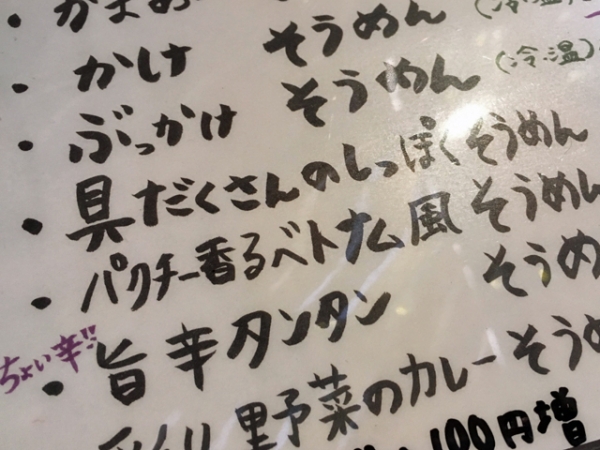 かけ そうめん (冷温)
・ぶっかけ そうめん (冷温)
・具だくさんのしっぽくそうめん
・パクチー香るベトナム風そうめん
ちょい辛!!
・旨辛タンタン そうめ
彩り野菜のカレーそうめ
100円増